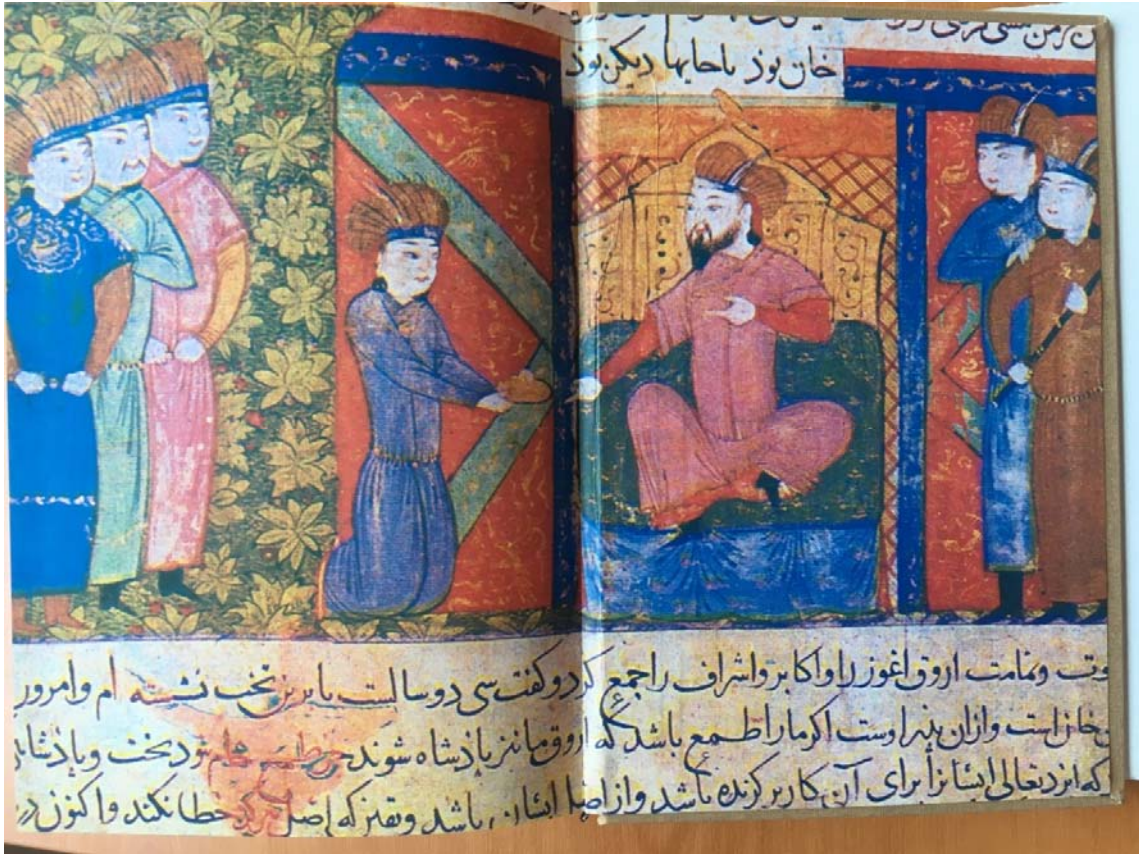 خان بوذ بوذ
وتمامت اروق اغوز راواکابر واشراف راجمع کردو کفت سی دوسالست تا برین تخت نشسته ام وامروز
خان است وازان پدر اوست اکر ما را طمع باشد که اروق ما نیز باذشاه شوند تخت
که ایزد تعالی ایشانرا برای آن کار بر کزیده باشد واز ایشان باشد ویقین که اصل خطا نکند واکنون